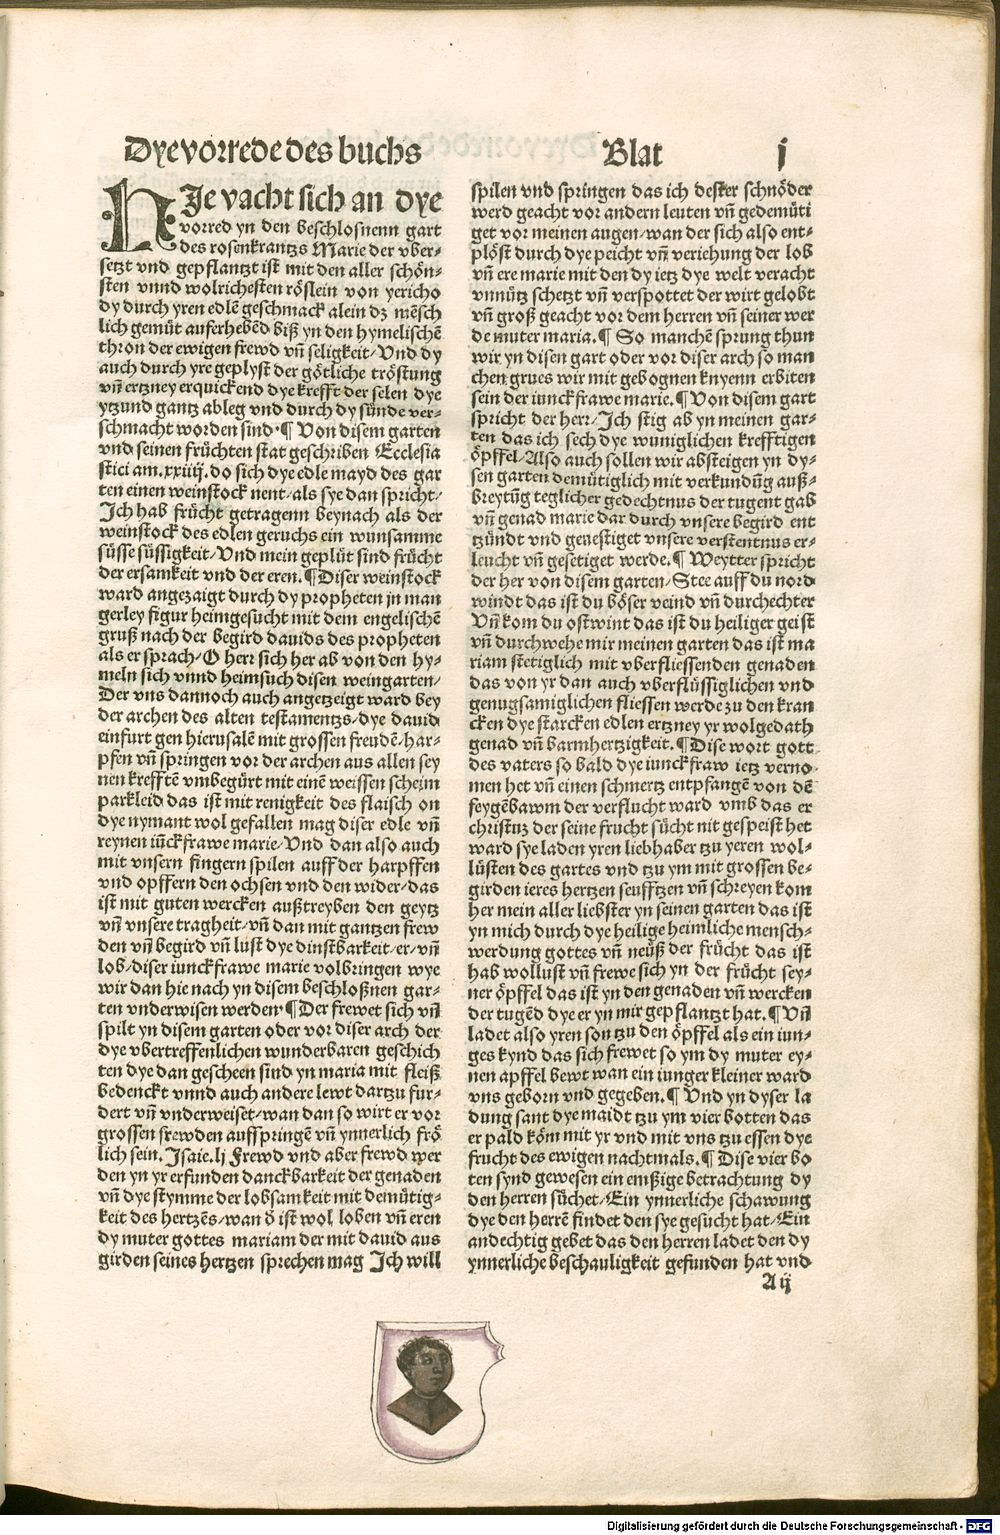 Dyevorrede des buchs
Blat
j
HJe vacht sich an dye
vorred yn den beschlosnenn gart
des rosenkrantzs Marie der vber⸗
setzt vnd gepflantzt ist mit den aller schön⸗
sten vnnd wolrichesten röslein von yericho
dy durch yren edlē geschmack alein dz mēsch
lich gemüt auferhebēd biß yn den hymelischē
thron der ewigen frewd vñ seligkeit/Vnd dy
auch durch yre geplyst der götliche tröstung
vñ ertzney erquickend dye krefft der selen dye
yetzund gantz ableg vnd durch dy sünde ver⸗
schmacht worden sind·¶ Von disem garten
vnd seinen früchten stat geschriben Ecclesia
stici am.xxiiij.do sich dye edle mayd des gar
ten einen weinstock nent/als sye dan spricht/
Jch hab frücht getragenn beynach als der
weinstock des edlen geruchs ein wunsamme
süsse süssigkeit/Vnd mein geplüt sind frücht
der ersamkeit vnd der eren.¶Diser weinstock
ward angezaigt durch dy propheten jn man
gerley figur heimgesucht mit dem engelischē
gruß nach der begird dauids des propheten
als er sprach/O herr sich her ab von den hy⸗
meln sich vnnd heimsuch disen weingarten/
Der vns dannoch auch angetzeigt ward bey
der archen des alten testamentzs/dye dauid
einfurt gen hierusalē mit grossen freudē/har⸗
pfen vñ springen vor der archen aus allen sey
nen krefftē vmbegürt mit einē weissen scheim
parkleid das ist mit renigkeit des flaisch on
dye nymant wol gefallen mag diser edle vñ
reynen iūckfrawe marie/Vnd dan also auch
mit vnsern fingern spilen auff der harpffen
vnd opffern den ochsen vnd den wider/das
ist mit guten wercken außtreyben den geytz
vñ vnsere tragheit/vñ dan mit gantzen frew
den vñ begird vñ lust dye dinstbarkeit/er/vñ
lob/diser iunckfrawe marie volbringen wye
wir dan hie nach yn disem beschloßnen gar⸗
ten vnderwisen werden·¶Der frewet sich vñ
spilt yn disem garten oder vor diser arch der
dye vbertreffenlichen wunderbaren geschich
ten dye dan gescheen sind yn maria mit fleiß
bedenckt vnnd auch andere lewt dartzu fur⸗
dert vñ vnderweiset/wan dan so wirt er vor
grossen frewden auffspringē vñ ynnerlich frö
lich sein. Jsaie.lj Frewd vnd aber frewd wer
den yn yr erfunden danckbarkeit der genaden
vñ dye stymme der lobsamkeit mit demütig⸗
keit des hertzēs/wan ď ist wol loben vñ eren
dy muter gottes mariam der mit dauid aus
girden seines hertzen sprechen mag Jch will
spilen vnd springen das ich dester schnöder
werd geacht vor andern leuten vñ gedemüti
get vor meinen augen/wan der sich also ent⸗
plöst durch dye peicht vñ veriehung der lob
vñ ere marie mit den dy ietz dye welt veracht
vnnütz schetzt vñ verspottet der wirt gelobt
vñ groß geacht vor dem herren vñ seiner wer
de muter maria.¶ So manchē sprung thun
wir yn disen gart oder vor diser arch so man
chen grues wir mit gebognen knyenn erbiten
sein der iunckfrawe marie.¶Von disem gart
spricht der herr/Jch stig ab yn meinen gar⸗
ten das ich sech dye wuniglichen krefftigen
öpffel/Also auch sollen wir absteigen yn dy⸗
sen garten demütiglich mit verkundūg auß⸗
breytūg teglicher gedechtnus der tugent gab
vñ genad marie dar durch vnsere begird ent
tzündt vnd geuestiget vnsere verstentnus er⸗
leucht vñ gesetiget werde.¶ Weytter spricht
der her von disem garten/Stee auff du nord
windt das ist du böser veind vñ durchechter
Vñ kom du ostwint das ist du heiliger geist
vñ durchwehe mir meinen garten das ist ma
riam stetiglich mit vberfliessenden genaden
das von yr dan auch vberflüssiglichen vnd
genugsamiglichen fliessen werde zu den kran
cken dye starcken edlen ertzney yr wolgedath
genad vñ barmhertzigkeit.¶Dise wort gott
des vaters so bald dye iunckfraw ietz verno⸗
men het vñ einen schmertz entpfangē von dē
feygēbawm der verflucht ward vmb das er
christuz der seine frucht sücht nit gespeist het
ward sye laden yren liebhaber tzu yeren wol⸗
lüsten des gartes vnd tzu ym mit grossen be⸗
girden ieres hertzen seufftzen vñ schreyen kom
her mein aller liebster yn seinen garten das ist
yn mich durch dye heilige heimliche mensch⸗
werdung gottes vñ neüß der frücht das ist
hab wollust vñ frewe sich yn der frücht sey⸗
ner öpffel das ist yn den genaden vñ wercken
der tugēd dye er yn mir gepflantzt hat.¶ Vñ
ladet also yren son tzu den öpffel als ein iun⸗
ges kynd das sich frewet so ym dy muter ey⸗
nen apffel bewt wan ein iunger kleiner ward
vns geborn vnd gegeben.¶ Vnd yn dyser la
dung sant dye maidt tzu ym vier botten das
er pald köm mit yr vnd mit vns tzu essen dye
frucht des ewigen nachtmals.¶ Dise vier bo
ten synd gewesen ein emßige betrachtung dy
den herren süchet/Ein ynnerliche schawung
dye den herrē findet den sye gesucht hat/Ein
andechtig gebet das den herren ladet den dy
ynnerliche beschauligkeit gefunden hat vnd
A ij
Digitalisierung gefördert durch die Deutsche Forschungsgemeinschaft - DFG